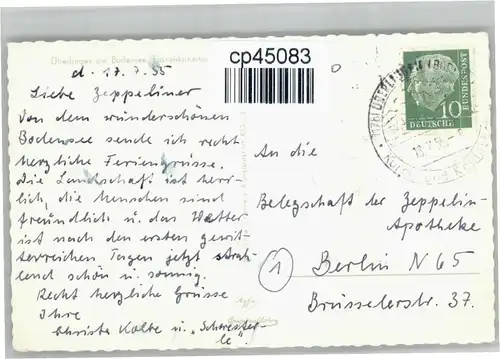 Überlingen am Bodensee, Franziskanertor
d. 17.7.55
Liebe Zeppeliner
Von dem wunderschönen
Bodensee sende ich recht
herzliche Feriengrüsse.
Die Landschaft ist herr-
lich, die Menschen sind
freundlich u. das Wetter
ist nach den ersten gewit-
terreichen Tagen jetzt strah-
lend schön u. sonnig.
Recht herzliche Grüsse
Ihre
Christa Kolbe u. „Schwester-
le".
cp45083
10
DEUTSCHE
BUNDESPOST
ÜBERLINGEN
18.7.55
An die
Belegschaft der Zeppelin-
Apotheke
1
Berlin N 65
Brüsselerstr. 37.